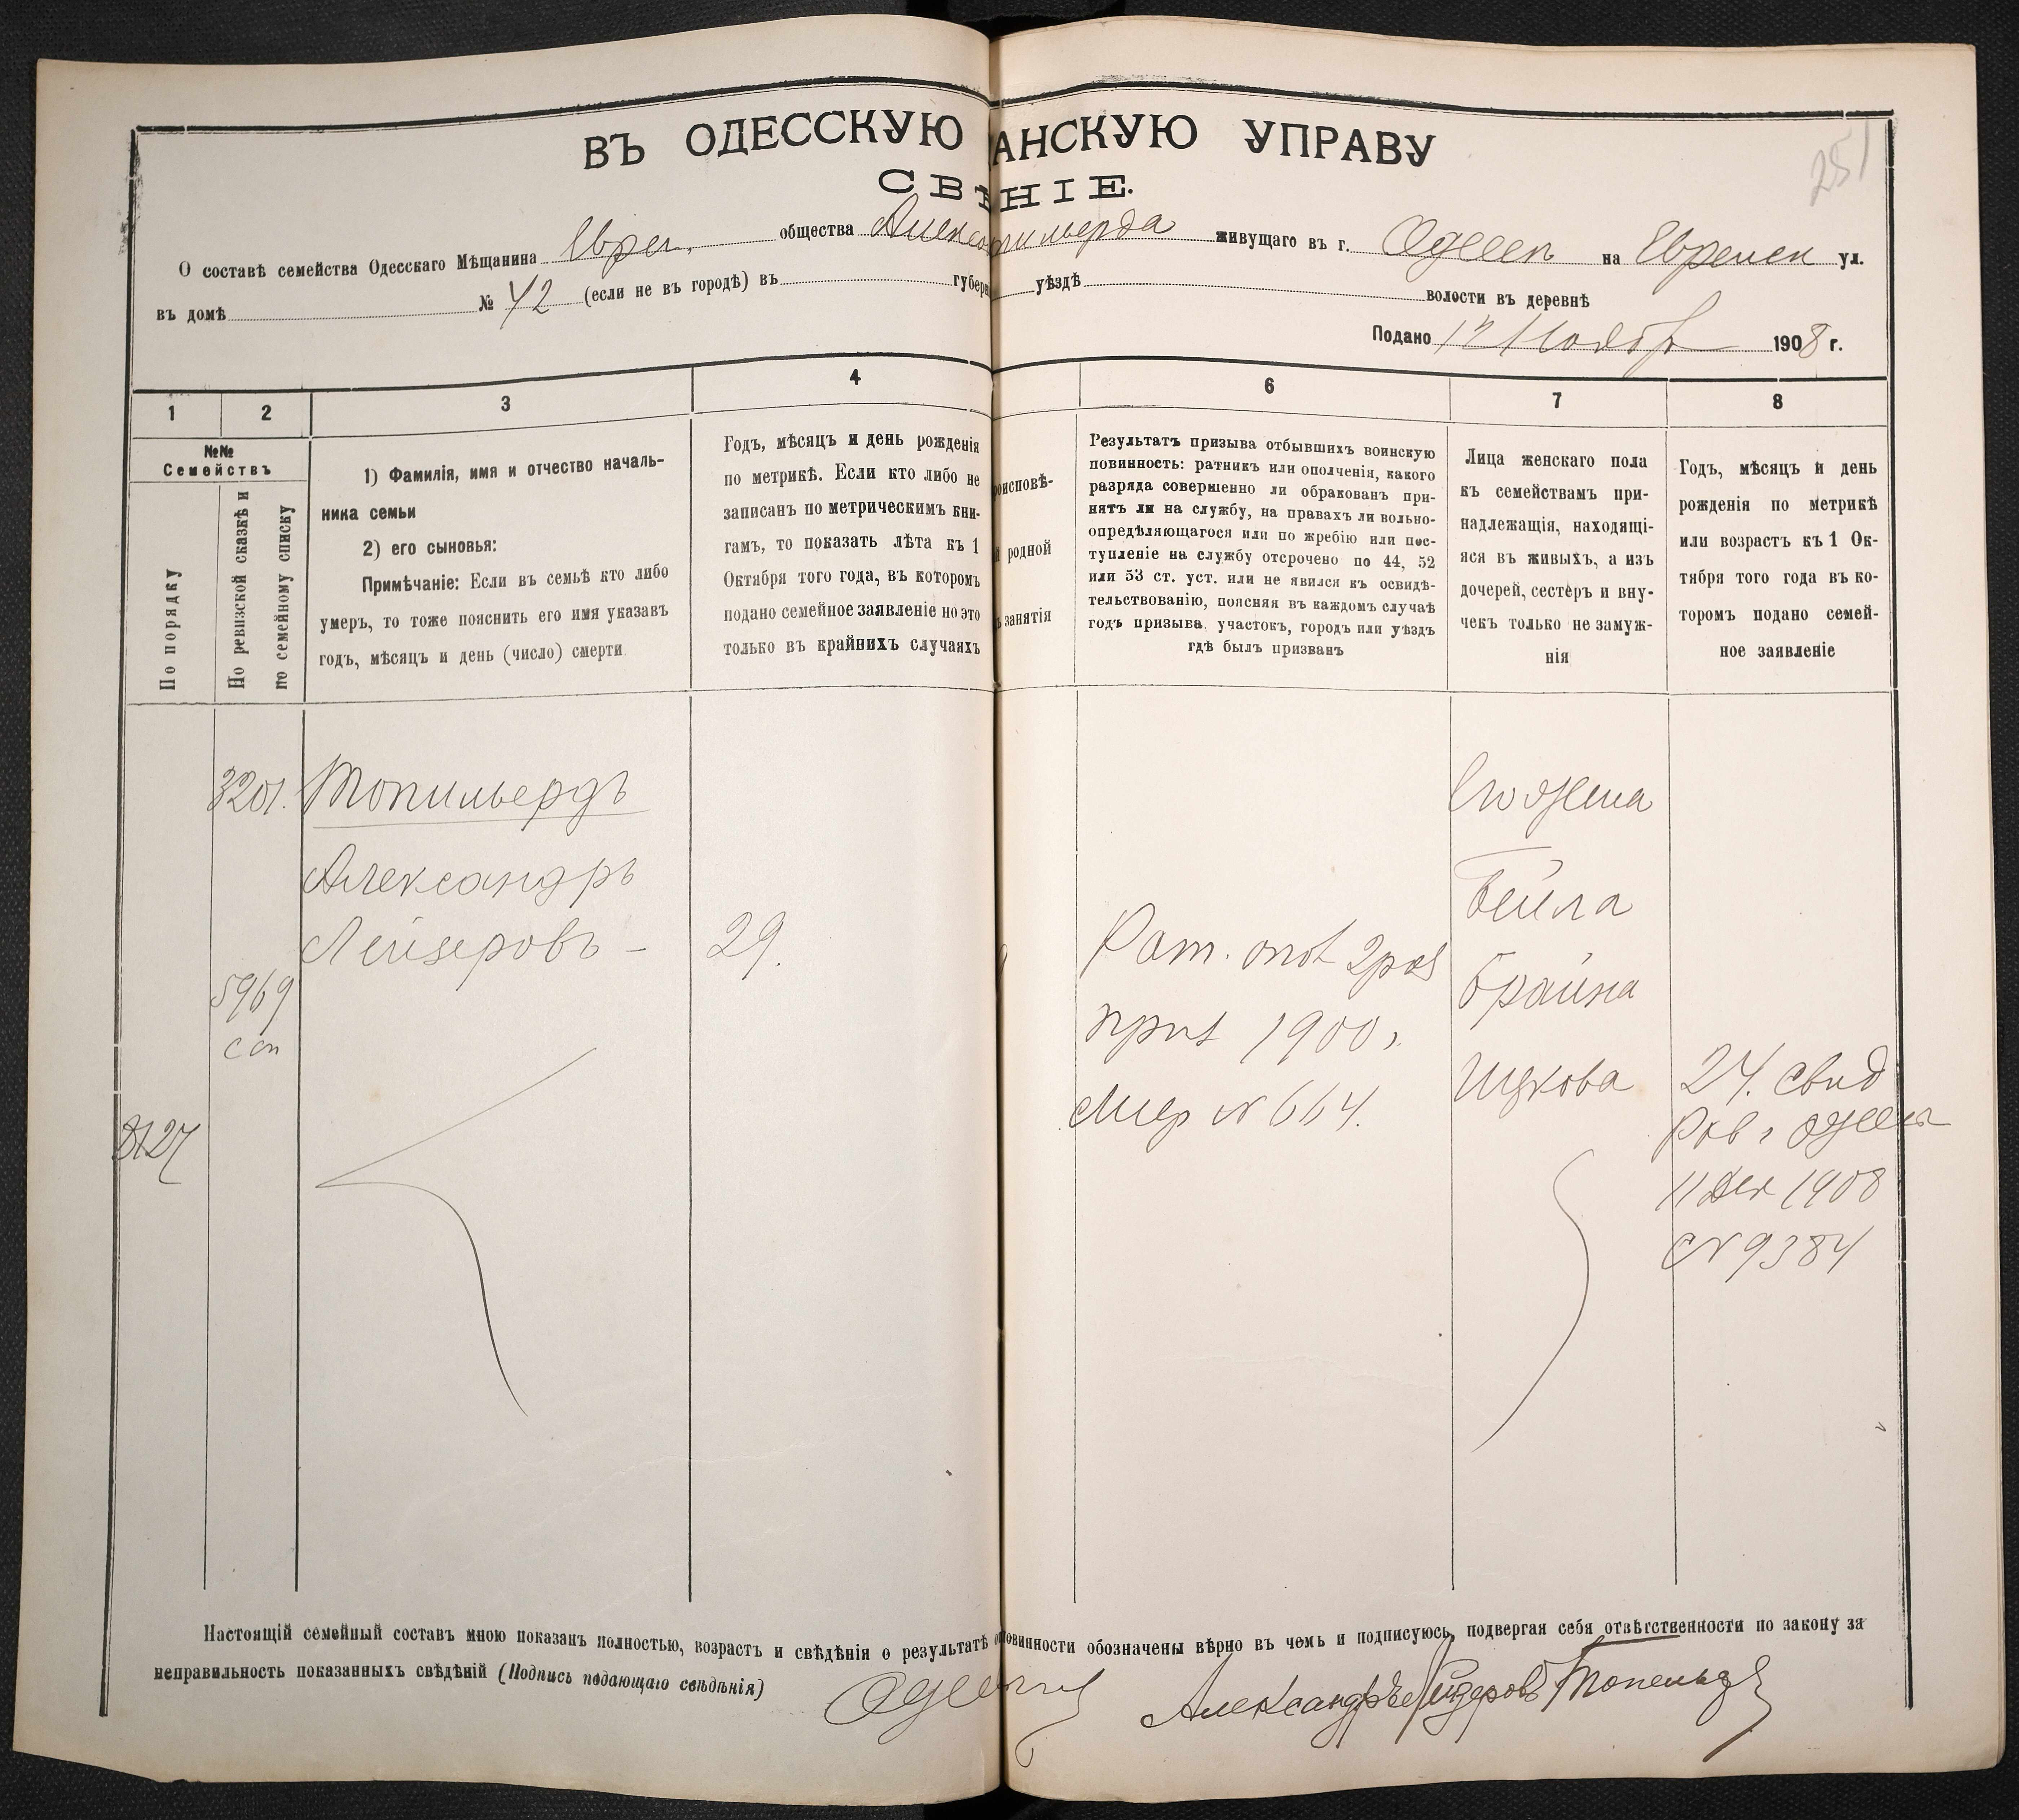 251
ВЪ ОДЕССКУЮ АНСКУЮ УПРАВУ
СВѢНІЕ.
О составѣ семейства Одесскаго Мѣщанина Евреи. общества живущаго въ г. Одессѣ на Еврейск ул.
въ домѣ № 42 (если не въ городѣ) въ губерн уѣздѣ волости въ деревнѣ
Подано 12 Ноябр 1908 г.
1 2 3 4 6 7 8
№№
Семействъ
По порядку
По ревизской сказкѣ и
по семейному списку
1) Фамилія, имя и отчество началь-
ника семьи
2) его сыновья:
Примѣчаніе: Если въ семьѣ кто либо
умеръ, то тоже пояснить его имя указавъ
годъ, мѣсяцъ и день (число) смерти
Годъ, мѣсяцъ и день рожденія
по метрикѣ. Если кто либо не
записанъ по метрическимъ кни-
гамъ, то показать лѣта къ 1
Октября того года, въ которомъ
подано семейное заявленіе но это
только въ крайнихъ случаяхъ
роисповѣ-
й родной
ъ занятія
Результатъ призыва отбывшихъ воинскую
повинность: ратникъ или ополченія, какого
разряда совершенно ли обракованъ при-
нятъ ли на службу, на правахъ ли вольно-
опредѣляющагося или по жребію или пос-
тупленіе на службу отсрочено по 44, 52
или 53 ст. уст. или не явился къ освидѣ-
тельствованію, поясняя въ каждомъ случаѣ
годъ призыва, участокъ, городъ или уѣздъ
гдѣ былъ призванъ
Лица женскаго пола
къ семействамъ при-
надлежащія, находящі-
яся въ живыхъ, а изъ
дочерей, сестеръ и вну-
чекъ только не замуж-
нія
Годъ, мѣсяцъ и день
рожденія по метрикѣ
или возрастъ къ 1 Ок-
тября того года въ ко-
торомъ подано семей-
ное заявленіе
3201. Топильбердъ
Александръ
Лейзеровъ - 29.
5969
сп
8127
Рат. опол 2 раз
приз 1900 г.
№ 664.
Его жена
Бейла
Брайна
Ицкова
24. Свид
Рав г Одессы
11 Дек 1908
№ 9384
Настоящій семейный составъ мною показанъ полностью, возрастъ и свѣдѣнія о результатѣ о повинности обозначены вѣрно въ чемъ и подписуюсь, подвергая себя отвѣтственности по закону за
неправильность показанныхъ свѣдѣній (Подпись подающаго свѣдѣнія)
Александръ Лейзеровъ